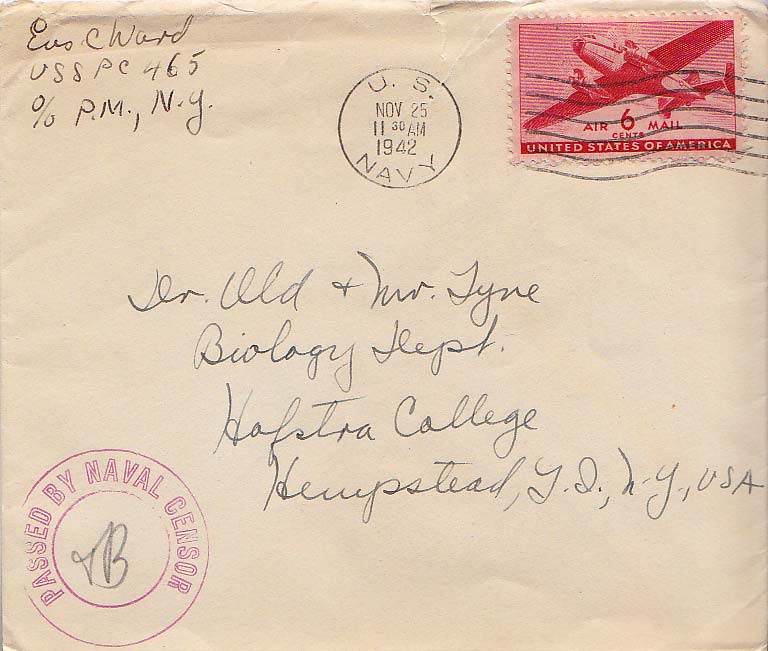 Ens C Ward
USS PC 465
c/o P.M., N.Y.
U. S.
NOV 25
11 30 AM
1942
NAVY
AIR 6 MAIL
CENTS
UNITED STATES OF AMERICA
Dr. Old + Mr. Tyne
Biology Dept.
Hofstra College
Hempstead, L.I., N.Y., USA
PASSED BY NAVAL CENSOR